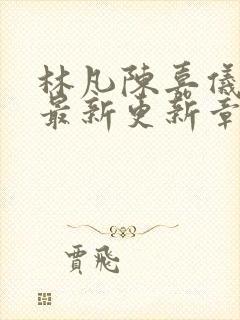 林凡陳嘉儀
最新更新章
賈飛